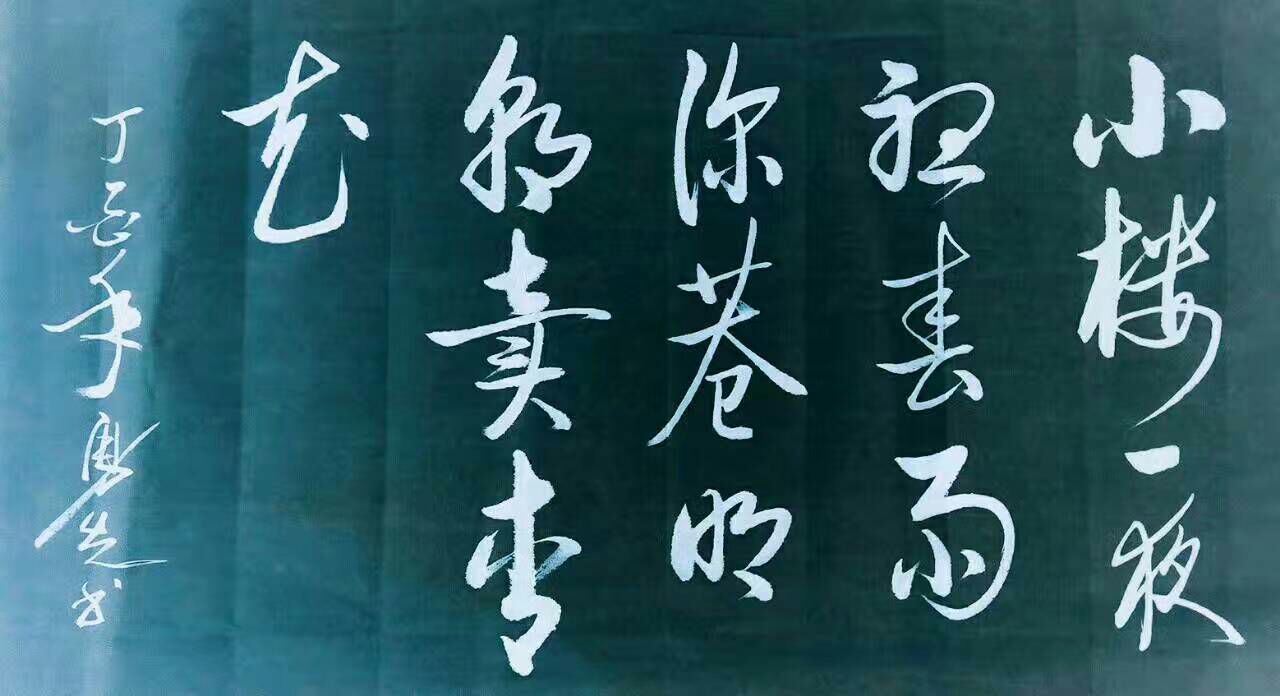 小楼一夜
听春雨
深巷明
朝卖杏
花
丁酉年 书